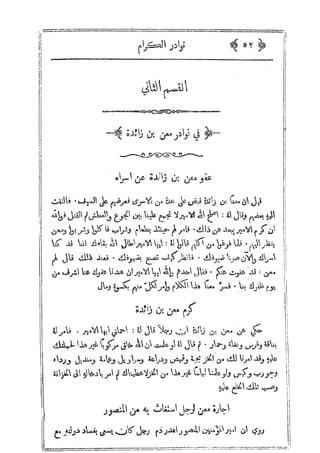 ﴿ ٥٢ ﴾ نوادر الكرام
القسم الثاني
﴿ في نوادر معن بن زائدة ﴾
عفو معن بن زائدة عن اسراه
قيل ان معنًا بن زائدة قبض على عدة من الاسرى فعرضهم على السيف . فالتفت
اليه بعضهم وقال له : اصلح الله الامير لا تجمع علينا بين الجوع والعطش ثم القتل فوالله
ان كرم الامير يبعد عن ذلك . فامر لهم حينئذ بطعام وشراب فاكلوا وشربوا ومعن
ينظر اليهم . فلما فرغوا من اكلهم قالوا له : ايها الامير اطال الله بقاءك اننا قد كنا
اسراك والآن صرنا ضيوفك . فانظر كيف تصنع بضيوفك . فعند ذلك قال لهم
معن : قد عفوت عنكم . فقال احدهم يا ايها الامير ان عندنا عفوك عنا اشرف من
يوم ظفرك بنا . فسرّ معنًا هذا الكلام وامر لكل منهم بكسوة ومال
كرم معن بن زائدة
حكي عن معن بن زائدة ان رجلًا قال له : احملني ايها الامير . فامر له
بناقة وفرس وبغلة وحمار . ثم قال له لو علمت ان الله خلق مركوبًا غير هذا لحملتك
عليه وقد امرنا لك من الخز بجبة وقميص ودراعة وسراويل وعمامة ومنديل ورداء
وجورب وكيس ولو علمنا لباسًا غير هذا من الخز لاعطيناك ثم امر بادخاله الى الخزانة
وصب تلك الخلع عليه
اجارة معن لرجل استغاث به من المنصور
روي ان امير المؤمنين المنصور اهدر دم رجل كان يسعى بفساد دولته مع